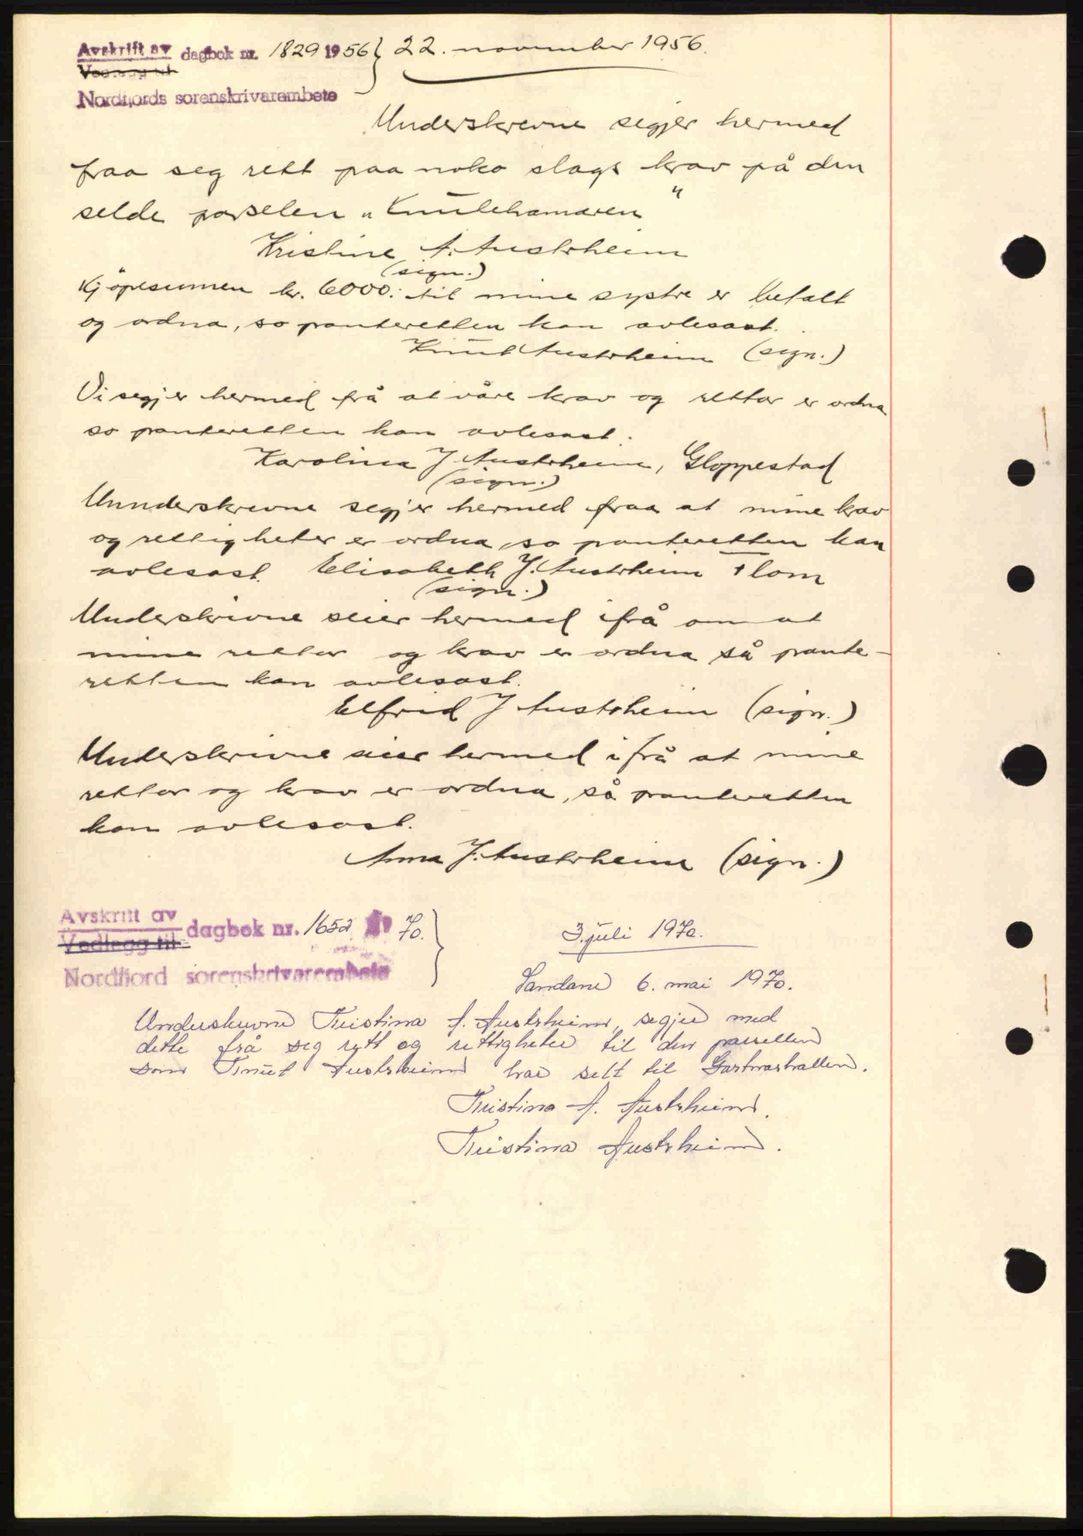 Avskrift av dagbok nr. 1829 1956 } 22. november 1956.
Vedlegg til
Nordfjords sorenskrivarembete
Underskrevne segjer hermed
fraa seg rett paa noko slags krav på den
selde parselen „Knutehamaren"
Kristine A. Austrheim
(sign.)
Kjöpesumen kr. 6000.- til mine systre er betalt
og ordna, so panteretten kan avlesast.
Knut Austrheim (sign.)
Vi segjer hermed frå at våre krav og rettar er ordna
so panteretten kan avlesast.
Karolina J Austrheim, Gloppestad
(sign.)
Unnderskrevne segjer hermed fraa at mine krav
og rettigheter er ordna, so panteretten kan
avlesast. Elisabeth J. Austrheim Flom
(sign.)
Underskrivne seier hermed ifrå om at
mine rettar og krav er ordna så pante-
retten kan avlesast.
Elfrid J Austrheim (sign.)
Underskrivne seier hermed ifrå at mine
rettar og krav er ordna, så panteretten
kan avlesast.
Anna J. Austrheim (sign.)
Avskrift av dagbok nr. 1652 70. } 3. juli 1970.
Vedlegg til
Nordfjord sorenskrivarembete
Sandane 6. mai 1970.
Underskrevne Kristina A. Austrheim, segjer med
dette frå seg rett og rettigheter til den parsellen
som Knut Austrheim har selt til
Kristina A. Austrheim.
Kristina Austrheim.